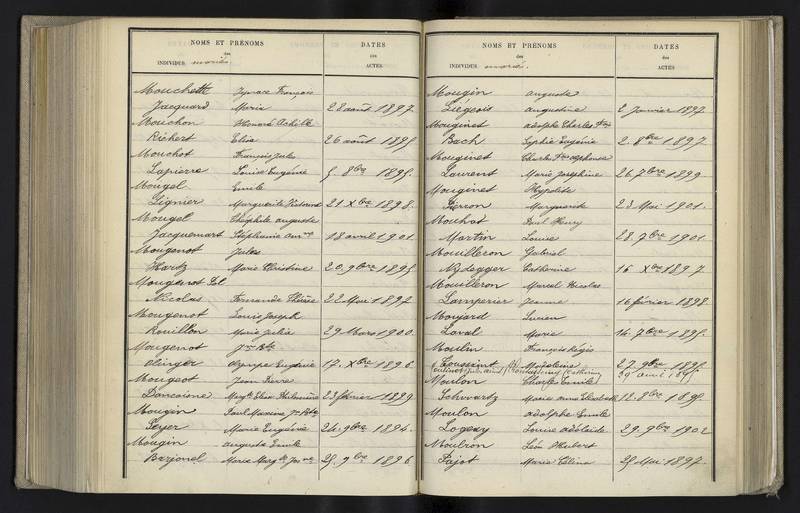 NOMS ET PRÉNOMS
des
INDIVIDUS mariés.
DATES
des
ACTES
Mouchette Ignace François
Jacquard Marie 28 août 1897.
Mouchon Honoré Achille
Richert Elise 26 août 1895.
Mouchot François Jules
Lapierre Louise Eugénie 5. 8bre 1895.
Mougel Emile
Lignier Marguerite 21 Xbre 1898.
Mougel Théophile auguste
Jacquemart Stéphanie 18 avril 1901.
Mougenot Jules
Hartz Marie Christine 20. 9bre 1895
Mougenot
Nicolas Fernande Thérèse 22 Mai 1892
Mougenot Louis Joseph
Rouillon Marie Julie 29 Mars 1900.
Mougenot Jn Bte
Olympe Eugénie 17. Xbre 1896
Mougeot Jean Pierre
23 février 1899
Mougin Paul Maxime Jn Bte
Marie Eugénie 24. 9bre 1894.
Mougin auguste Emile
Barjonel Marie Margte 25. 9bre 1896
NOMS ET PRÉNOMS
des
INDIVIDUS mariés.
DATES
des
ACTES
Mougin auguste
Liégeois augustine 2 Janvier 1897.
Mouginet adolphe Charles
Bach Sophie Eugénie 2. 8bre 1897
Mouginet Charles alphonse
Laurent Marie Joséphine 26. 7bre 1899
Mouginet Hypolite
Pierron Marguerite 23 Mai 1901.
Mouhot Paul Henry
Martin Louise 28. 7bre 1901.
Mouilleron Gabriel
Nydegger Catherine 16 Xbre 1897.
Mouilleron Marcel Nicolas
Lamperier Jeanne 16 février 1898.
Moujard Lucien
Laval Marie 14. 7bre 1895.
Moulin François Régis
Toussaint Madeleine 27. 9bre 1895
Moulon Charles Emile
Schwartz Marie anne Elisabeth 12. 8bre 1895.
Moulon adolphe Emile
Logery Louise adélaïde 29. 9bre 1902
Moulron Léon Hubert
Pajot Marie Célina 25 Mai 1897.